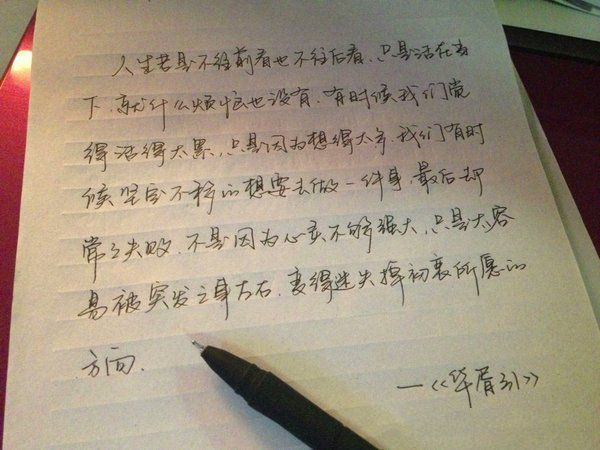 人生若是不往前看也不往后看,只是活在当
下,就什么烦恼也没有,有时候我们觉
得活得太累,只是因为想得太多,我们有时
候坚定不移的想要去做一件事,最后却
常常失败,不是因为心志不够强大,只是太容
易被突发之事左右,变得迷失掉初衷所愿的
方向.
—《华胥引》